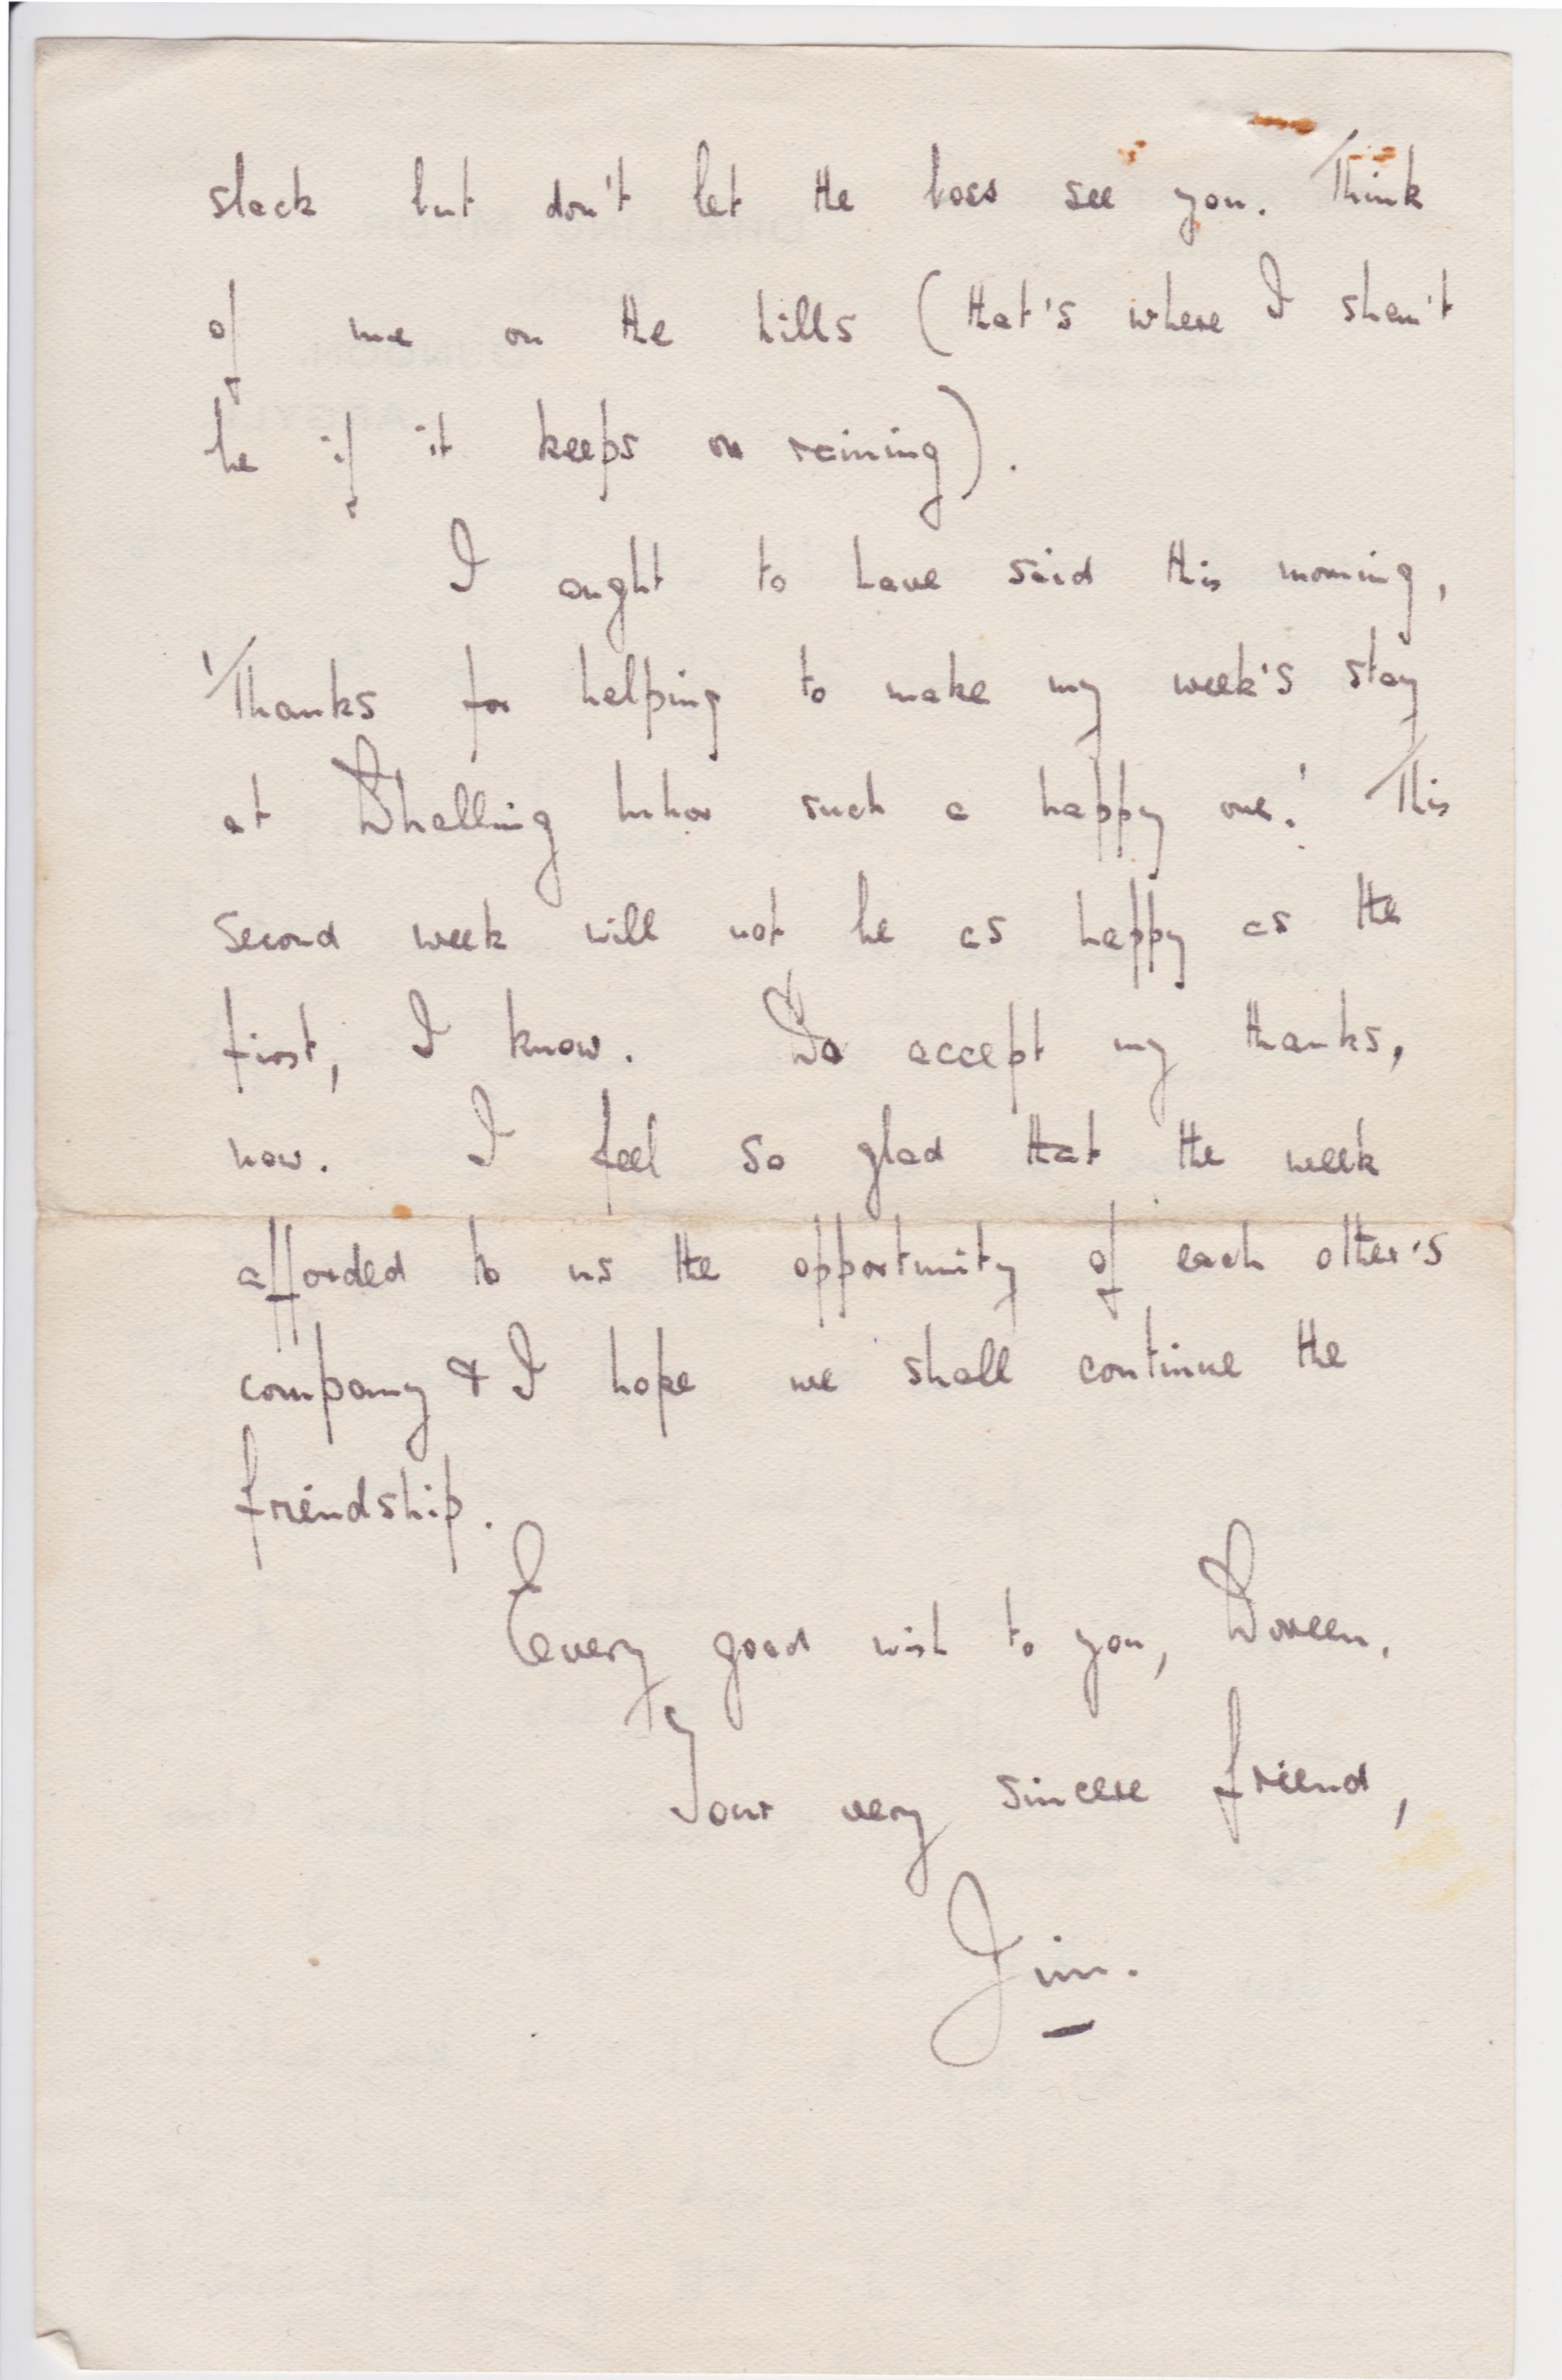 slack but don't let the boss see you. Think
of me on the hills (that's where I shan't
be if it keeps on raining).
I ought to have said this morning,
'Thanks for helping to make my week's stay
at Dhalling Mhor such a happy one.' This
second week will not be as happy as the
first, I know. Do accept my thanks,
now. I feel so glad that the week
afforded to us the opportunity of each other's
company & I hope we shall continue the
friendship.
Every good wish to you, Doreen.
Your very sincere friend,
Jim.